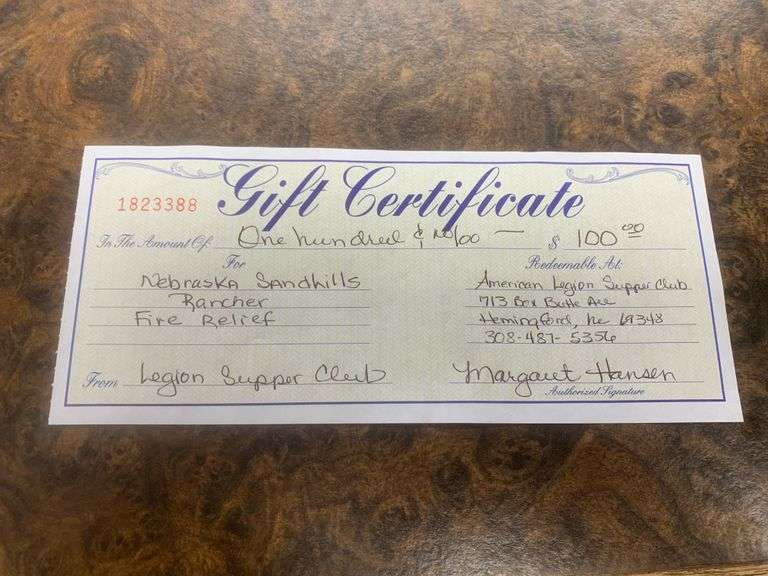 Gift Certificate
1823388
In The Amount Of One hundred & no/100 — $ 100.00
For
Nebraska Sandhills
Rancher
Fire Relief
Redeemable At:
American Legion Supper Club
713 Box Butte Ave
Hemingford, Ne 69348
308-487-5356
From Legion Supper Club
Margaret Hansen
Authorized Signature